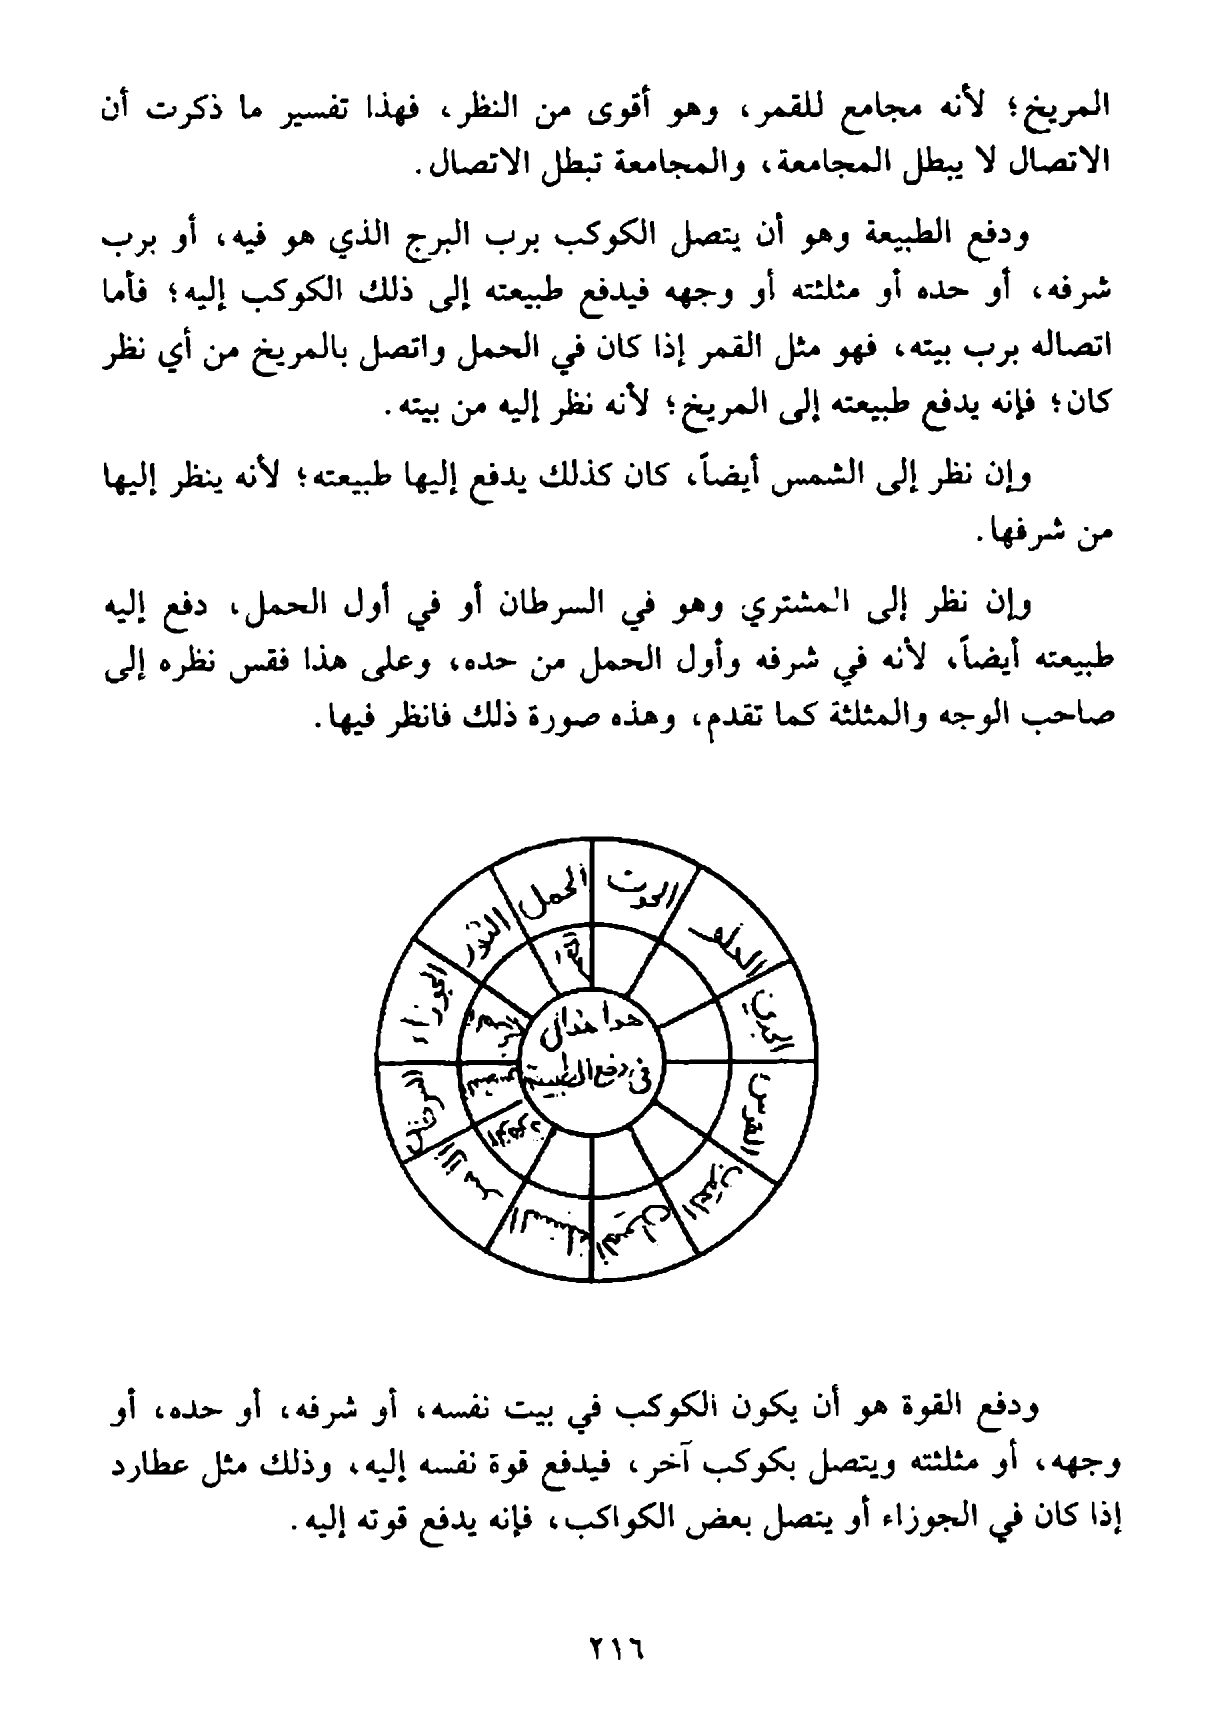 المريخ؛ لأنه مجامع للقمر، وهو أقوى من النظر، فهذا تفسير ما ذكرت أن
الاتصال لا يبطل المجامعة، والمجامعة تبطل الاتصال.
ودفع الطبيعة وهو أن يتصل الكوكب برب البرج الذي هو فيه، أو برب
شرفه، أو حده أو مثلثته أو وجهه فيدفع طبيعته إلى ذلك الكوكب إليه؛ فأما
اتصاله برب بيته، فهو مثل القمر إذا كان في الحمل واتصل بالمريخ من أي نظر
كان؛ فإنه يدفع طبيعته إلى المريخ؛ لأنه نظر إليه من بيته.
وإن نظر إلى الشمس أيضاً، كان كذلك يدفع إليها طبيعته؛ لأنه ينظر إليها
من شرفها.
وإن نظر إلى المشتري وهو في السرطان أو في أول الحمل، دفع إليه
طبيعته أيضاً، لأنه في شرفه وأول الحمل من حده، وعلى هذا فقس نظره إلى
صاحب الوجه والمثلثة كما تقدم، وهذه صورة ذلك فانظر فيها.
الحمل
الحوت
الدلو
الثور
القمر
الجوزاء
الجدي
هذا مثال
في دفع الطبيعة
السرطان
القوس
الزهرة
الأسد
العقرب
السنبلة
الميزان
ودفع القوة هو أن يكون الكوكب في بيت نفسه، أو شرفه، أو حده، أو
وجهه، أو مثلثته ويتصل بكوكب آخر، فيدفع قوة نفسه إليه، وذلك مثل عطارد
إذا كان في الجوزاء أو يتصل بعض الكواكب، فإنه يدفع قوته إليه.
٢١٦